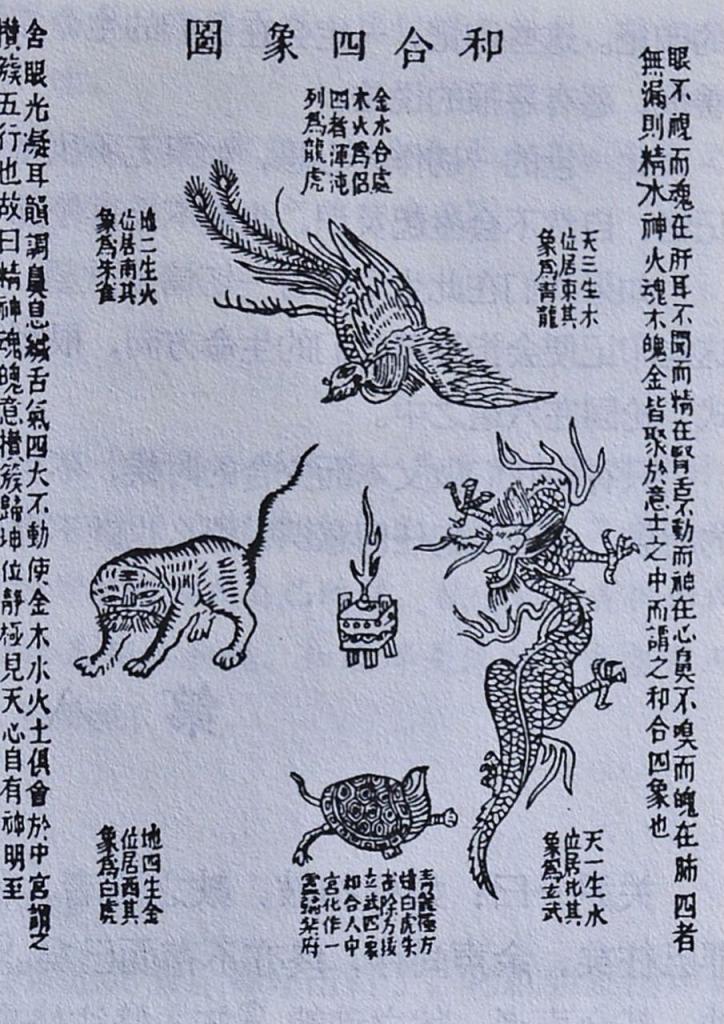 和合四象圖
眼不視而魂在肝耳不聞而精在腎舌不動而神在心鼻不嗅而魄在肺四者
無漏則精水神火魂木魄金皆聚於意士之中而謂之和合四象也
金水合處
木火爲侶
四者渾沌
列爲龍虎
天三生木
位居東其
象爲青龍
地二生火
位居南其
象爲朱雀
天一生水
位居北其
象爲玄武
青龍
白虎朱
雀
四象
和合人中
宮化作一
靈
地四生金
位居西其
象爲白虎
含眼光凝耳韻調鼻息緘舌氣四大不動使金木水火土俱會於中宮謂之
攢簇五行也故曰精神魂魄意攢簇歸坤位靜極見天心自有神明至